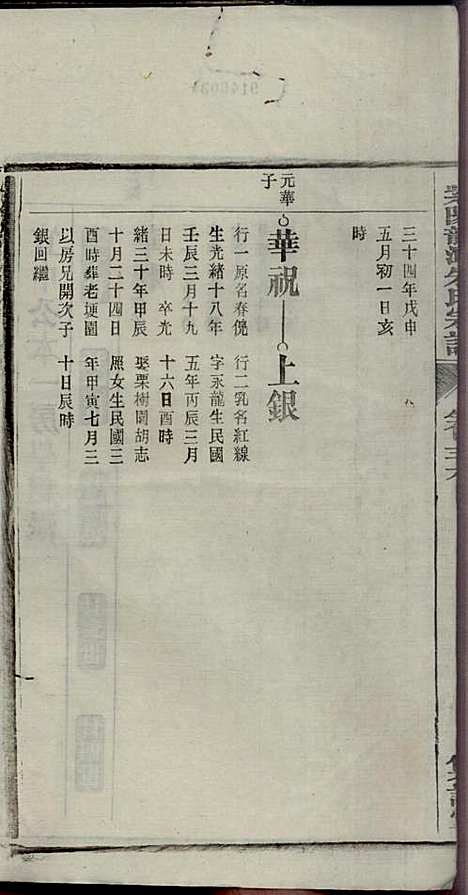 三十四年戊申
五月初一日亥
時
元華子
華祝
上銀
行一原名春儻
生光緒十八年
壬辰三月十九
日未時 卒光
緒三十年甲辰
十月二十四日
酉時葬老埂園
以房兄開次子
銀回繼
行二乳名紅線
字永龍生民國
五年丙辰三月
十六日酉時
娶栗樹園胡志
照女生民國三
年甲寅七月三
十日辰時